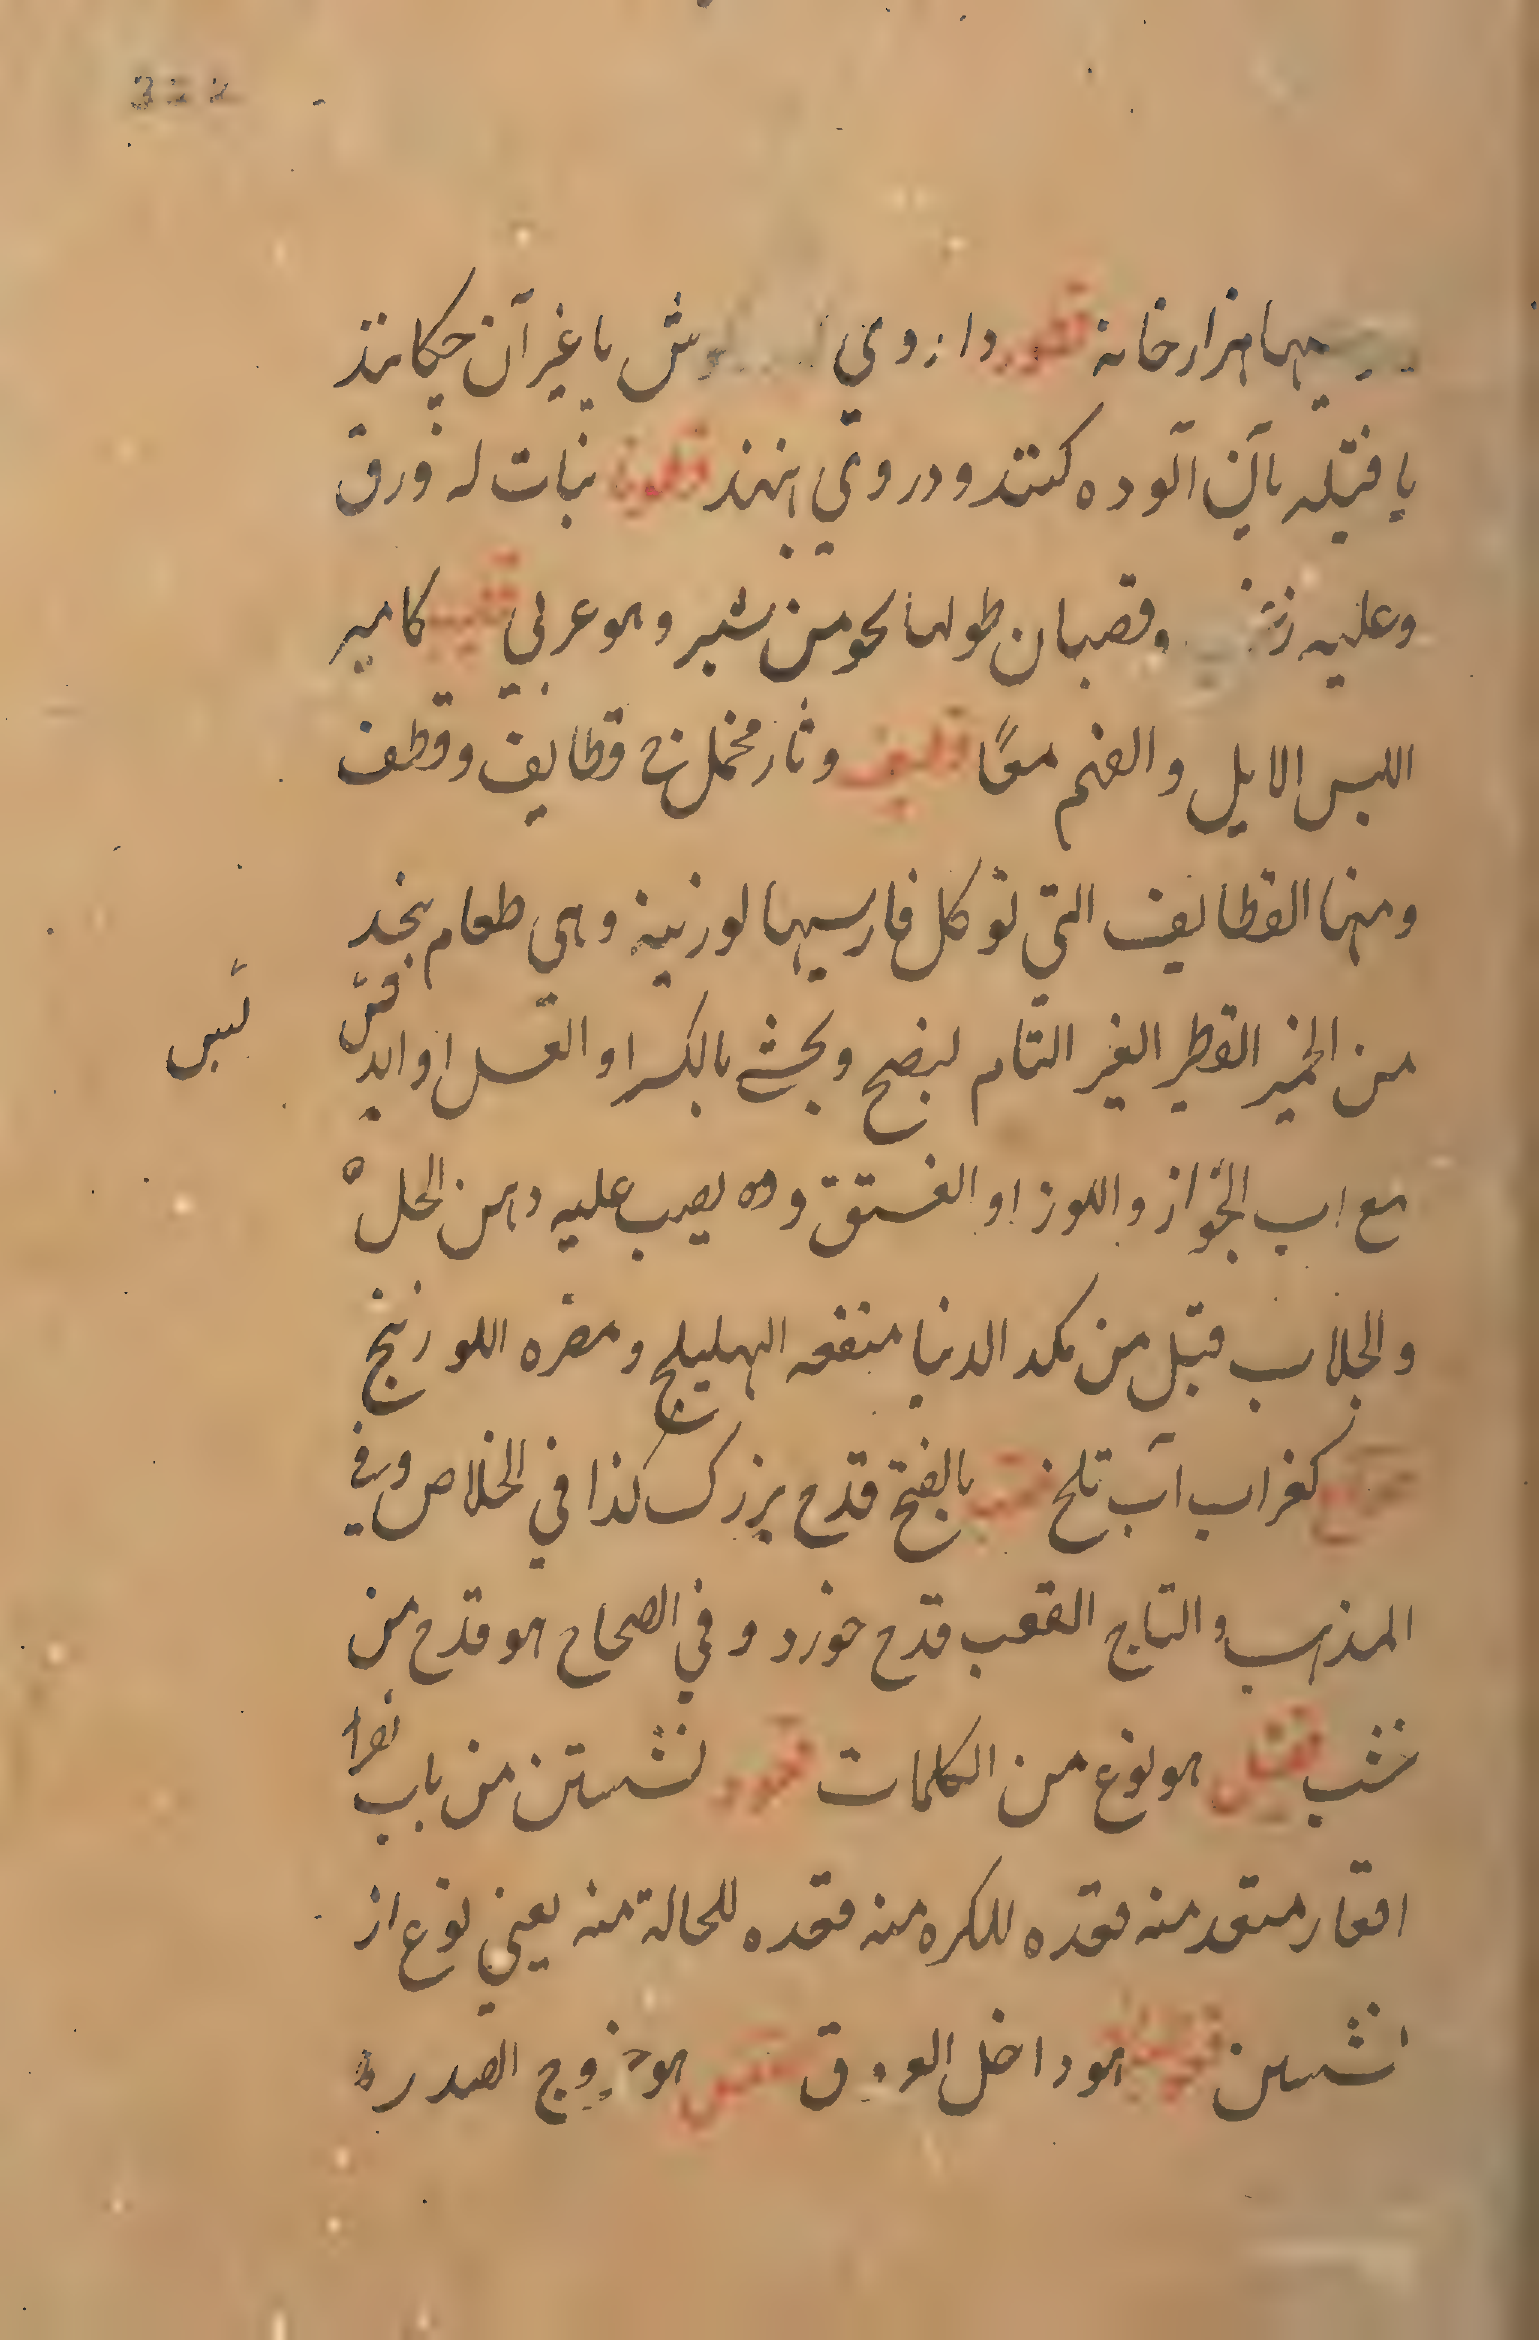 322
هزارخانه قطور داروي ـوش يا غير آن چكانند
يا فتيله بآن آلوده كنند و در وي بنهند قطونا نبات له ورق
وعليه وقصبان طولها نحو من شبر وهو عربي قطيب كامير
اللبس الابل والغنم معًا قطيف وثار مخمل ج قطايف وقطف
ومنها القطايف التي توكل فارسيها لوزينه وهي طعام يتخذ
من الخمير القطير الغير التام لينضج ويحشى بالسكر او العسل او الد
مع لب الجواز واللوز او الفستق وده يصب عليه دهن الحل
والجلاب قيل من نكد الدنيا منفعه الهليلج ومضره اللوزينج
كغراب آب تلخ قعب بالفتح قدح بزرك كذا في الخلاص وفي
المذهب والتاج القعب قدح خورد وفي الصحاح هو قدح من
خشب هو نوع من الكلمات قعود نشستن من باب نصر
اقعار مقعد منه قعده للكره منه قعده للحالة منه يعني نوع از
نشستن هو داخل العروق قعس هو خروج الصدر